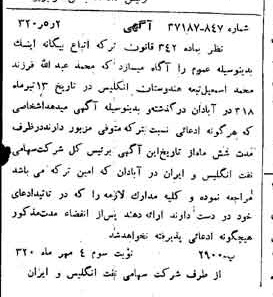 شماره ۸۴۷-۳۷۱۸۷ آگهی ۲ر۵ر۳۲۰
نظر بماده ۳۴۲ قانون ترکه اتباع بیگانه اینک
بدینوسیله عموم را آگاه میسازد که محمد عبدالله فرزند
محمد اسمعیل تبعه هندوستان انگلیس در تاریخ ۱۳ تیرماه
۳۱۸ در آبادان درگذشته و بدینوسیله آگهی میدهد اشخاصی
که هرگونه ادعائی نسبت بترکه متوفی مزبور دارند در ظرف
مدت شش ماه از تاریخ این آگهی برئیس کل شرکت سهامی
نفت انگلیس و ایران در آبادان که امین ترکه می باشد
مراجعه نموده و کلیه مدارک لازمه را که در تائید ادعای
خود در دست دارند ارائه دهند پس از انقضاء مدت مذکور
هیچگونه ادعائی پذیرفته نخواهد شد
پ-۲۹۰۰ نوبت سوم ۴ مهر ماه ۳۲۰
از طرف شرکت سهامی نفت انگلیس و ایران